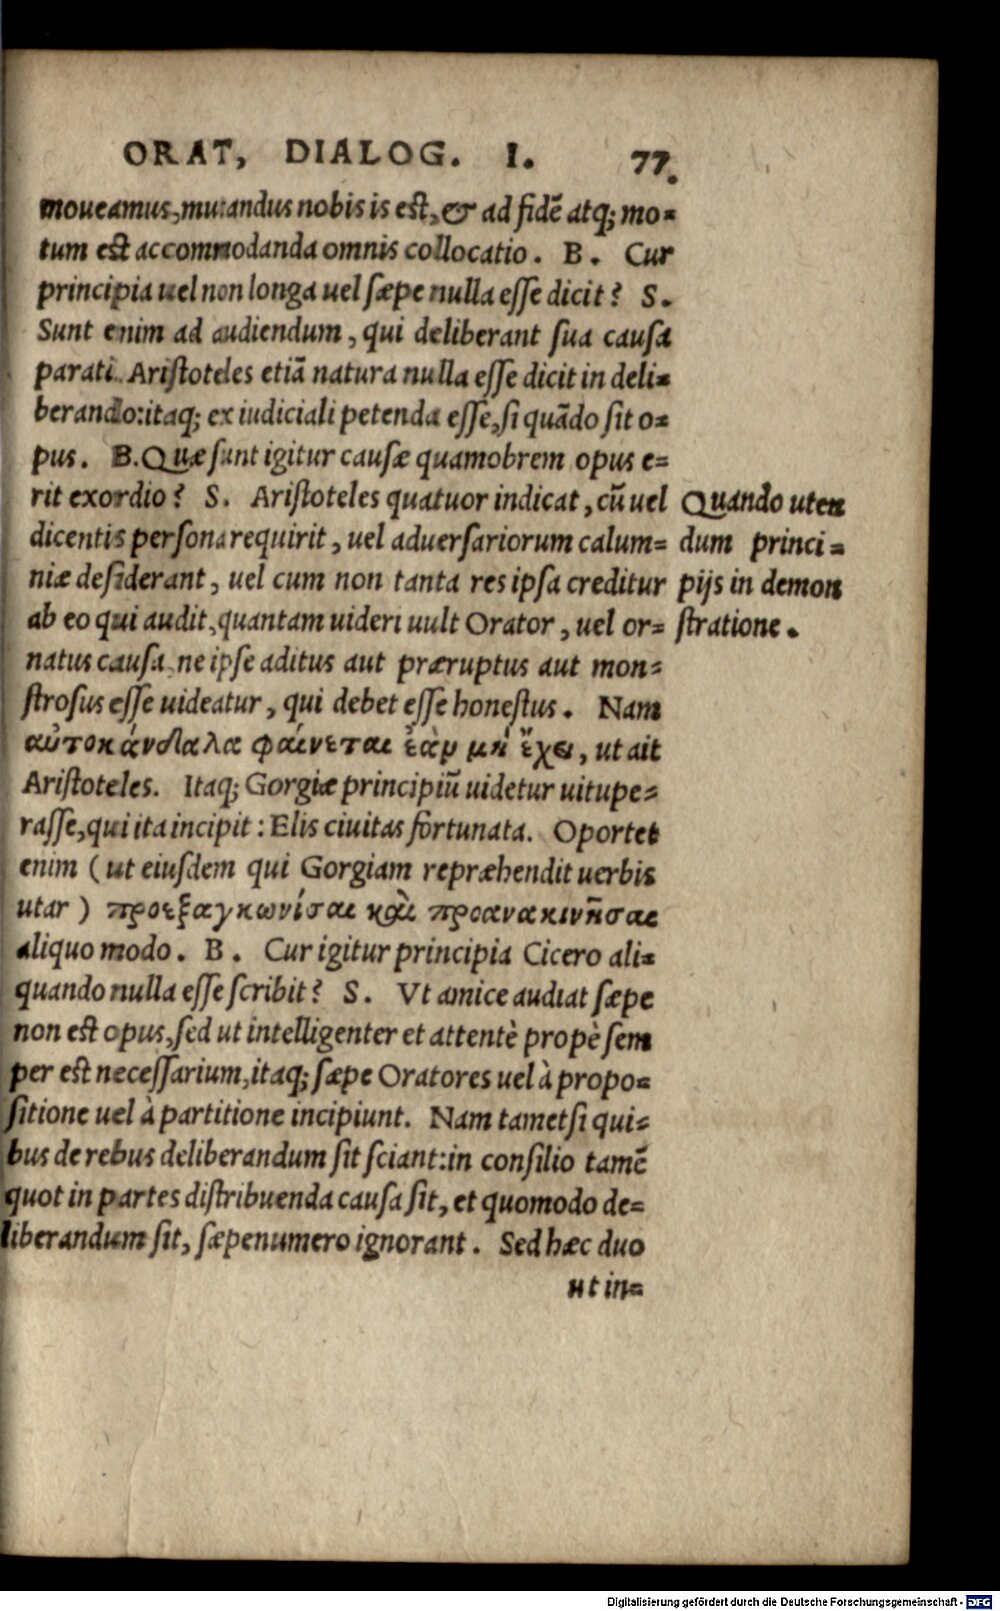 ORAT, DIALOG. I. 77.
moueamus, mutandus nobis is est, & ad fidē atq; mo-
tum est accommodanda omnis collocatio. B. Cur
principia uel non longa uel sæpe nulla esse dicit? S.
Sunt enim ad audiendum, qui deliberant sua causa
parati. Aristoteles etiā natura nulla esse dicit in deli-
berando: itaq; ex iudiciali petenda esse, si quādo sit o-
pus. B. Quæ sunt igitur causæ quamobrem opus e-
rit exordio? S. Aristoteles quatuor indicat, cū uel
dicentis persona requirit, uel aduersariorum calum-
niæ desiderant, uel cum non tanta res ipsa creditur
ab eo qui audit, quantam uideri uult Orator, uel or-
natus causa, ne ipse aditus aut præruptus aut mon-
strosus esse uideatur, qui debet esse honestus. Nam
αὐτοκάνδαλα φαίνεται ἐὰν μὴ ἔχει, ut ait
Aristoteles. Itaq; Gorgiæ principiū uidetur uitupe-
rasse, qui ita incipit: Elis ciuitas fortunata. Oportet
enim (ut eiusdem qui Gorgiam repræhendit uerbis
utar) προεξαγκωνίσαι καὶ προανακινῆσαι
aliquo modo. B. Cur igitur principia Cicero ali-
quando nulla esse scribit? S. Vt amice audiat sæpe
non est opus, sed ut intelligenter et attentè propè sem
per est necessarium, itaq; sæpe Oratores uel à propo-
sitione uel à partitione incipiunt. Nam tametsi qui-
bus de rebus deliberandum sit sciant: in consilio tamē
quot in partes distribuenda causa sit, et quomodo de-
liberandum sit, sæpenumero ignorant. Sed hæc duo
ut in-
Quando uten
dum princi-
pijs in demon
stratione.
Digitalisierung gefördert durch die Deutsche Forschungsgemeinschaft - DFG